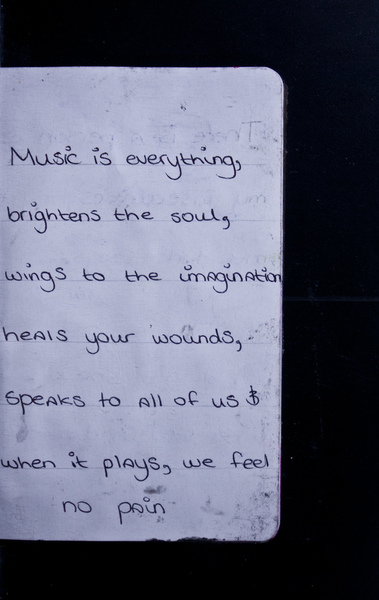 Music is everything,
brightens the soul,
wings to the imagination
heals your wounds,
speaks to all of us &
when it plays, we feel
no pain